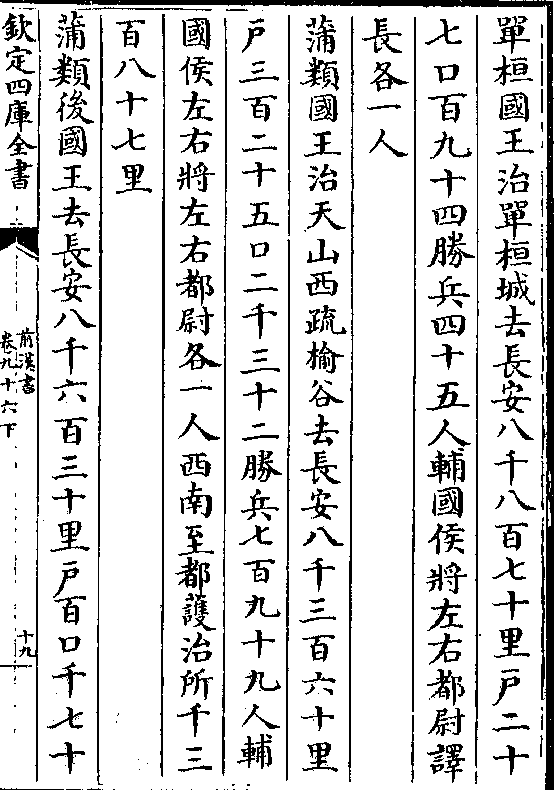 單桓國王治單桓城去長安八千八百七十里戸二十
七口百九十四勝兵四十五人輔國侯將左右都尉譯
長各一人
蒲類國王治天山西疏榆谷去長安八千三百六十里
戸三百二十五口二千三十二勝兵七百九十九人輔
國侯左右將左右都尉各一人西南至都䕶治所千三
百八十七里
蒲類後國王去長安八千六百三十里戸百口千七十
欽定四庫全書
前漢書
卷九十六下
十九